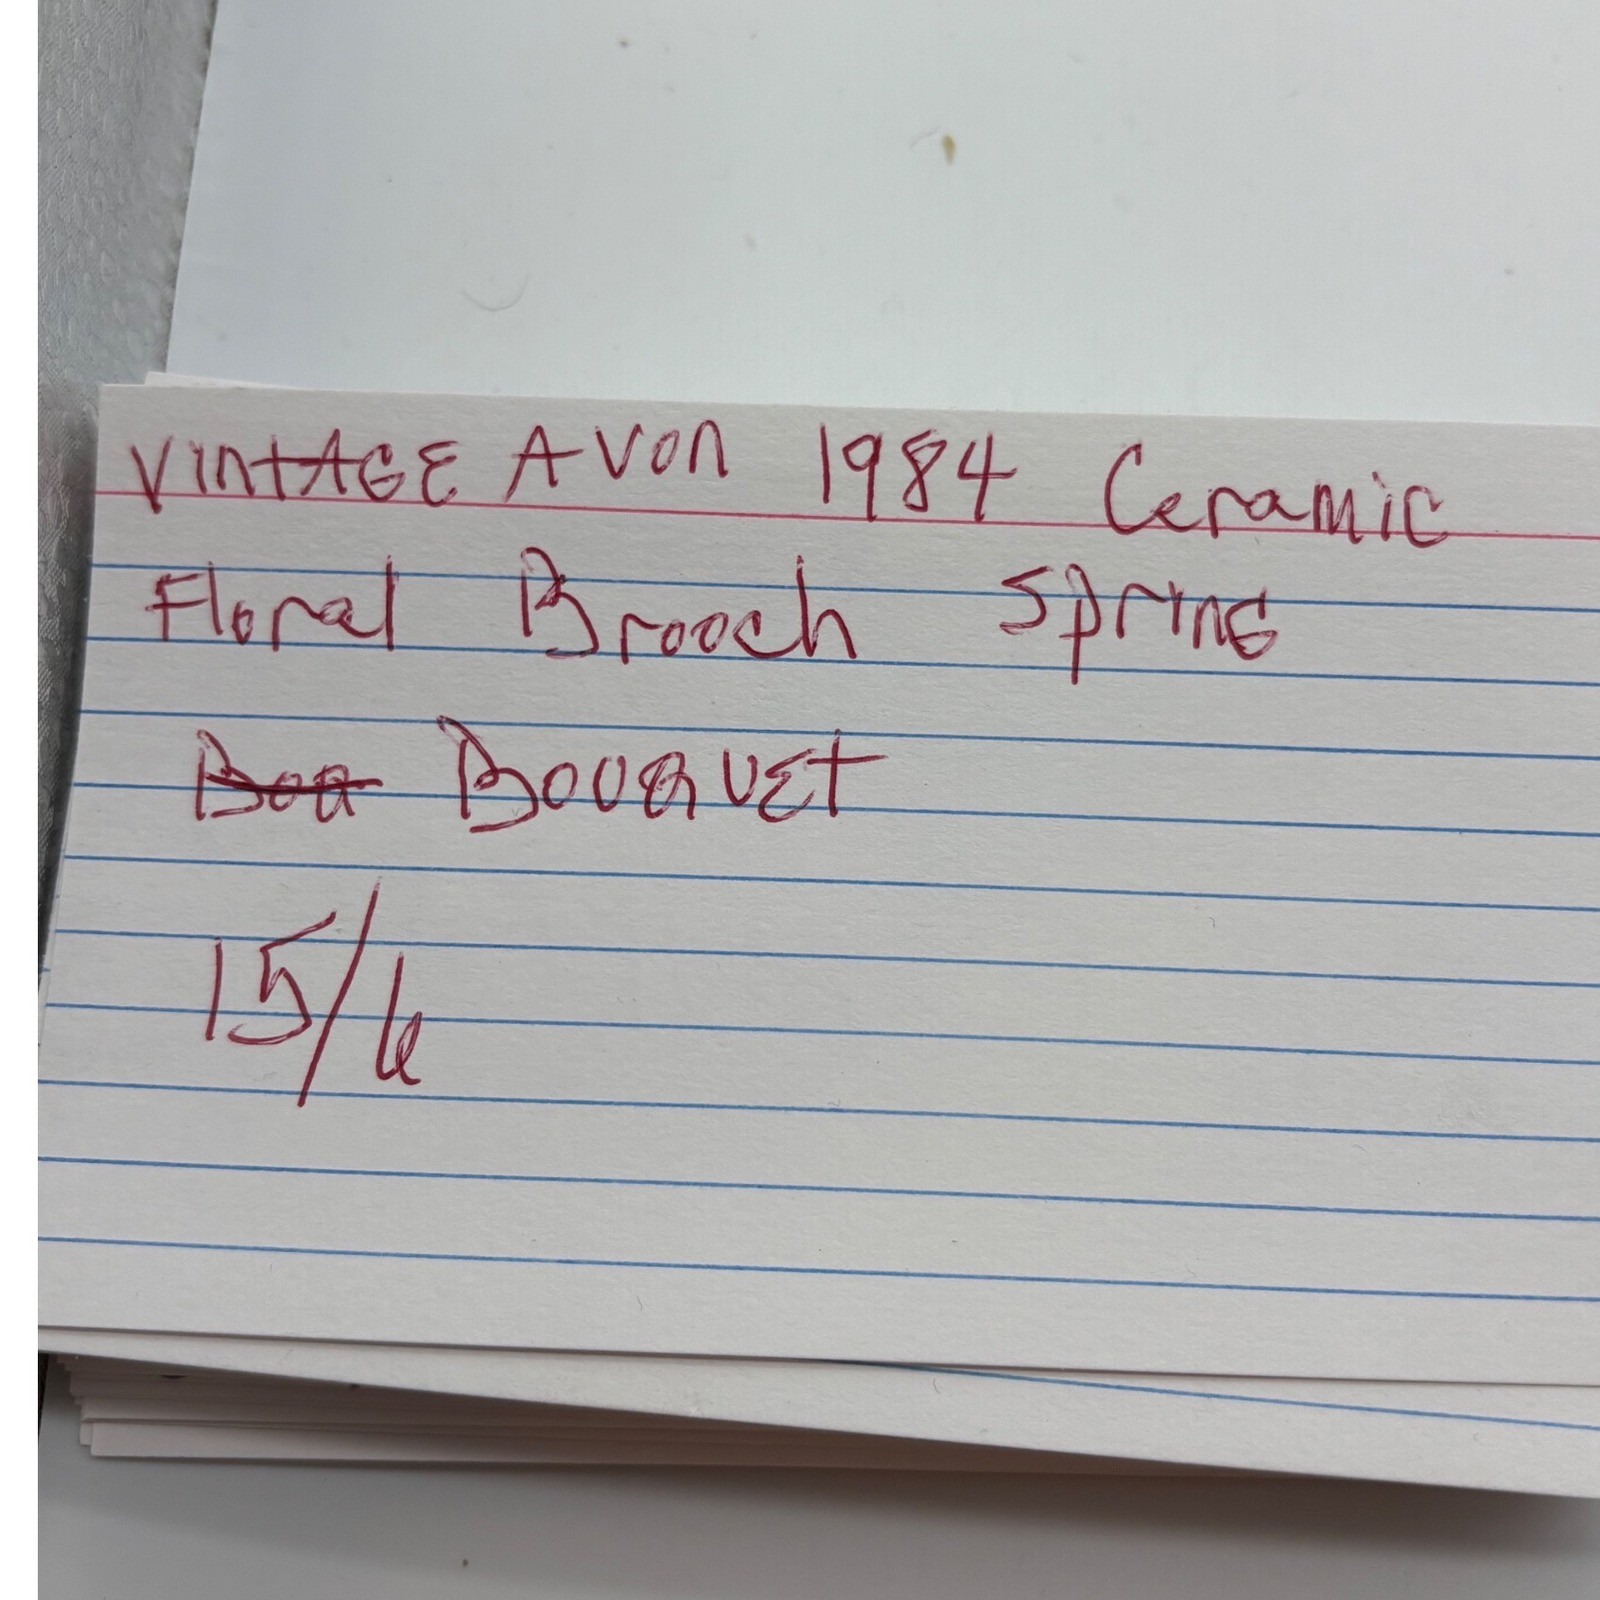 VINTAGE AVON 1984 Ceramic
Floral Brooch Spring
Boq BOUQUET
15/6